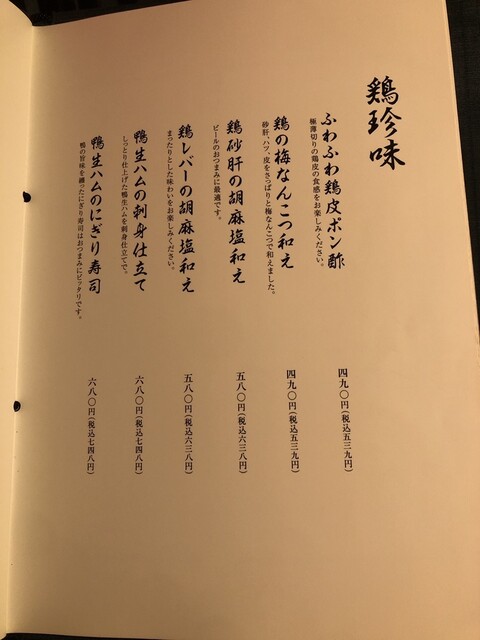 鶏珍味
ふわふわ鶏皮ポン酢
極薄切りの鶏皮の食感をお楽しみください。
四九〇円(税込五三九円)
鶏の梅なんこつ和え
砂肝、ハツ、皮をさっぱりと梅なんこつで和えました。
四九〇円(税込五三九円)
鶏砂肝の胡麻塩和え
ビールのおつまみに最適です。
五八〇円(税込六三八円)
鶏レバーの胡麻塩和え
まったりとした味わいをお楽しみください。
五八〇円(税込六三八円)
鴨生ハムの刺身仕立て
しっとり仕上げた鴨生ハムを刺身仕立てで。
六八〇円(税込七四八円)
鴨生ハムのにぎり寿司
鴨の旨味を纏ったにぎり寿司はおつまみにピッタリです。
六八〇円(税込七四八円)